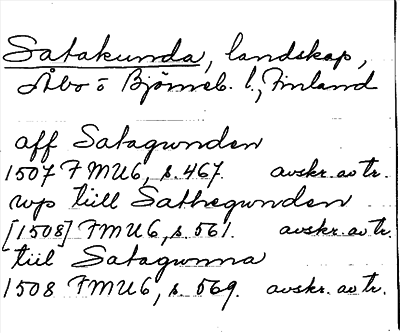 Satakunda, landskap,
Åbo o Björneb. l., Finland
aff Satagunden
1507 FMU6, s. 467. avskr. av tr.
wp tiill Sathegunden
[1508] FMU6, s. 561. avskr. av tr.
tiil Satagunna
1508 FMU6, s. 569. avskr. av tr.